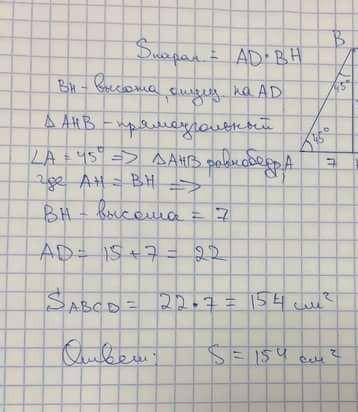 B
Sпарал = AD · BH
45°
BH - высота, опущ. на AD
△AHB - прямоугольный
45°
∠A = 45° => △AHB равнобедр,
A
7
где AH = BH =>
BH - высота = 7
AD = 15 + 7 = 22
SABCD = 22 · 7 = 154 см²
Ответ: S = 154 см²